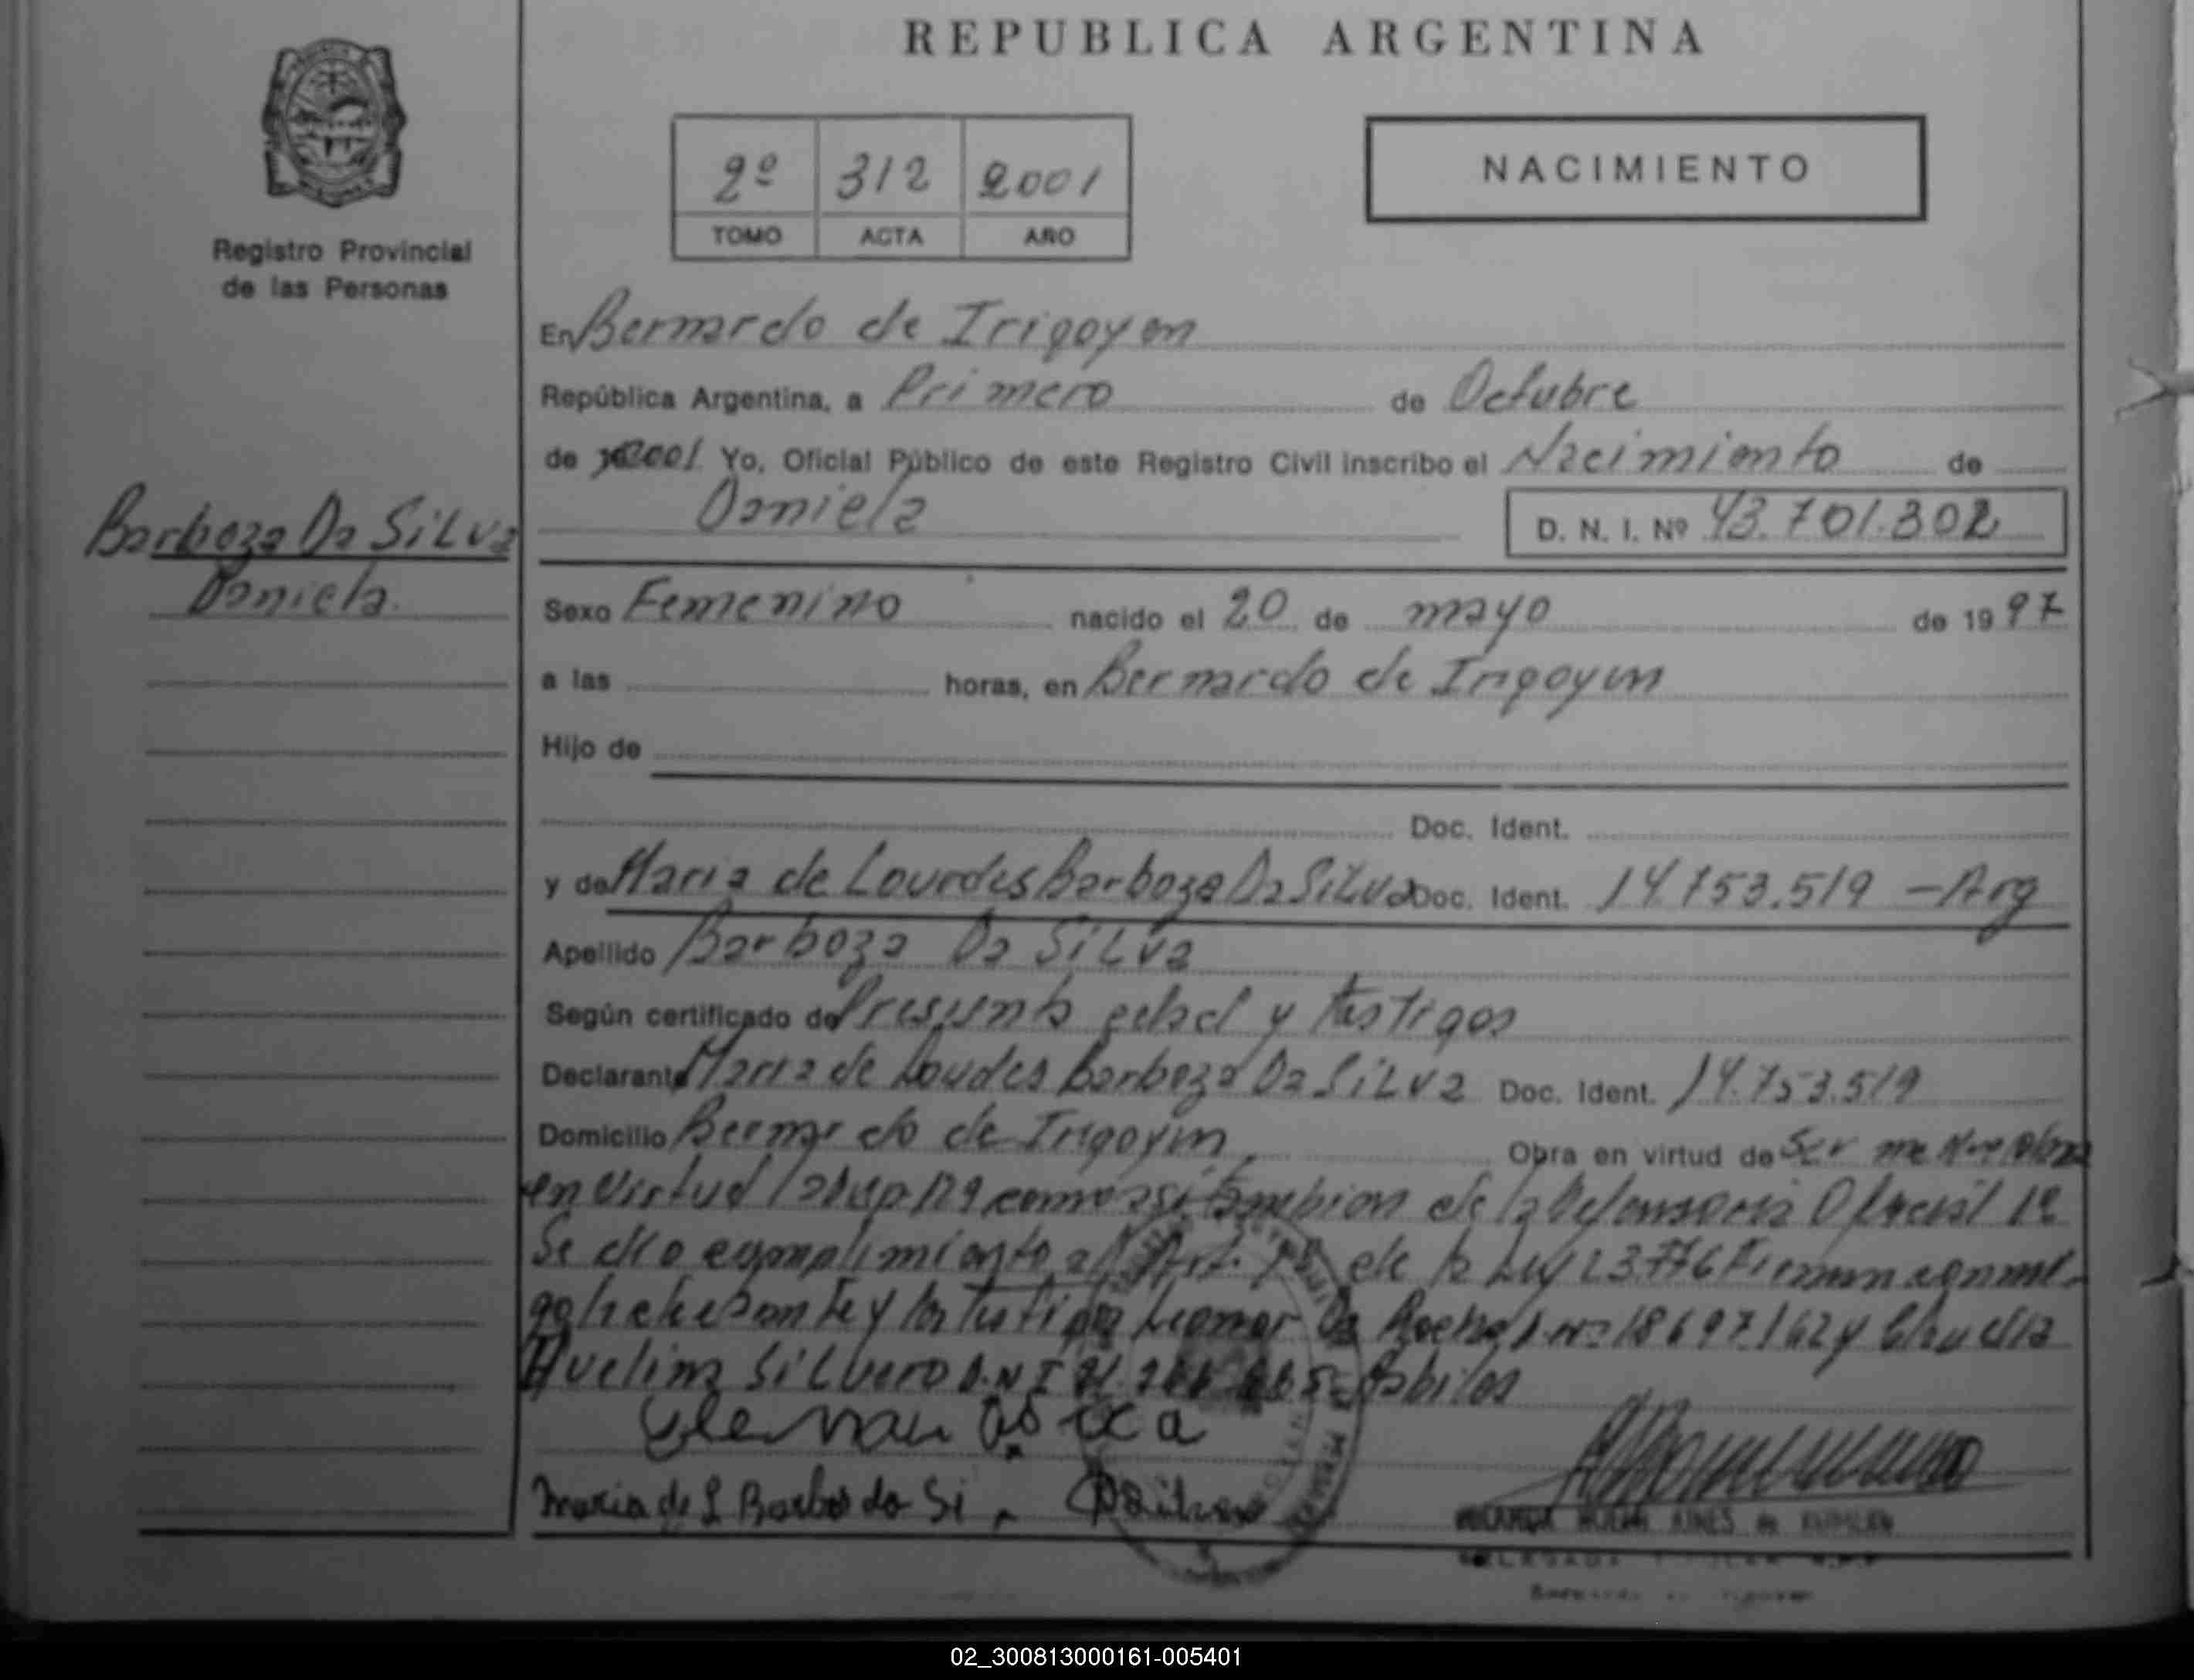 REPUBLICA ARGENTINA
2º 312 2001
TOMO ACTA AÑO
NACIMIENTO
Registro Provincial
de las Personas
En Bernardo de Irigoyen
República Argentina, a Primero de Octubre
de 2001 Yo, Oficial Público de este Registro Civil inscribo el Nacimiento de
Daniela D. N. I. Nº 43.701.302
Barboza Da Silva
Daniela.
Sexo Femenino nacido el 20 de mayo de 1997
a las horas, en Bernardo de Irigoyen
Hijo de
Doc. Ident.
y de Maria de Lourdes Barboza Da Silva Doc. Ident. 14.753.519 - Arg
Apellido Barboza Da Silva
Según certificado de Presunta edad y testigos
Declarante Maria de Loudes Barboza Da Silva Doc. Ident. 14.753.519
Domicilio Bernardo de Irigoyen Obra en virtud de Ser madre
en virtud como asi tambien de la Defensoria Oficial 1º
Se dio cumplimiento al Art. de la Ley 23.776
y los testigos Leonor Da Rocha 18697162 y Claudia
Avelina Silvero D.N.I
Maria de L Barbos da Si
02_300813000161-005401